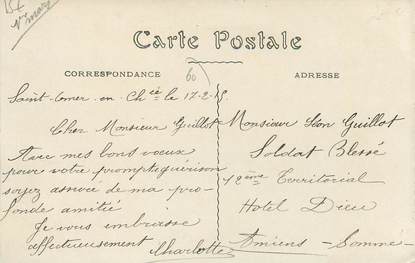 Carte Postale
CORRESPONDANCE
ADRESSE
60
Saint-Comer-en-Chie le 17-2-15
Cher Monsieur Guillot
Avec mes bons voeux
pour votre prompte guérison
soyez assuré de ma pro-
fonde amitié
Je vous embrasse
affectueusement
Charlotte
Monsieur Léon Guillot
Soldat Blessé
12ème Territorial
Hotel Dieu
Amiens - Somme -